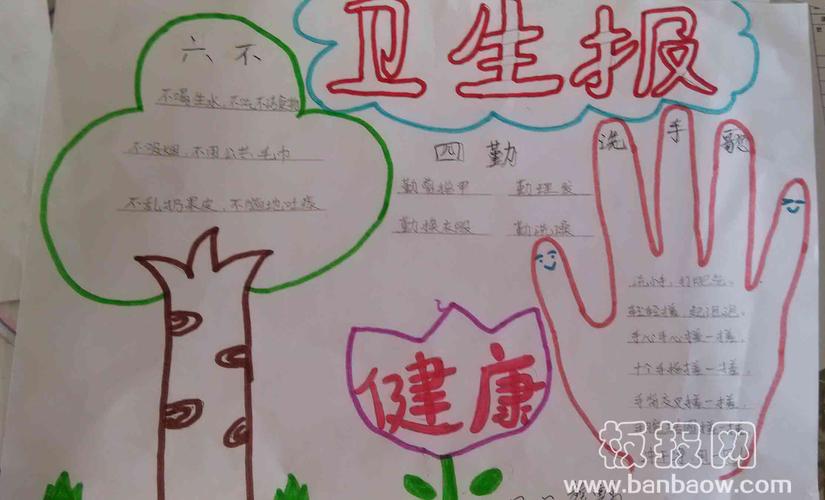 卫生报
六不
不喝生水,不吃不洁食物
不吸烟,不用公共毛巾
不乱扔果皮,不随地吐痰
四勤
勤剪指甲 勤理发
勤换衣服 勤洗澡
洗手歌
洗小手,打肥皂,
轻轻搓,起泡泡,
手心手心搓一搓,
十个手指搓一搓,
手背交叉搓一搓,
健康
板报网
www.banbaow.com